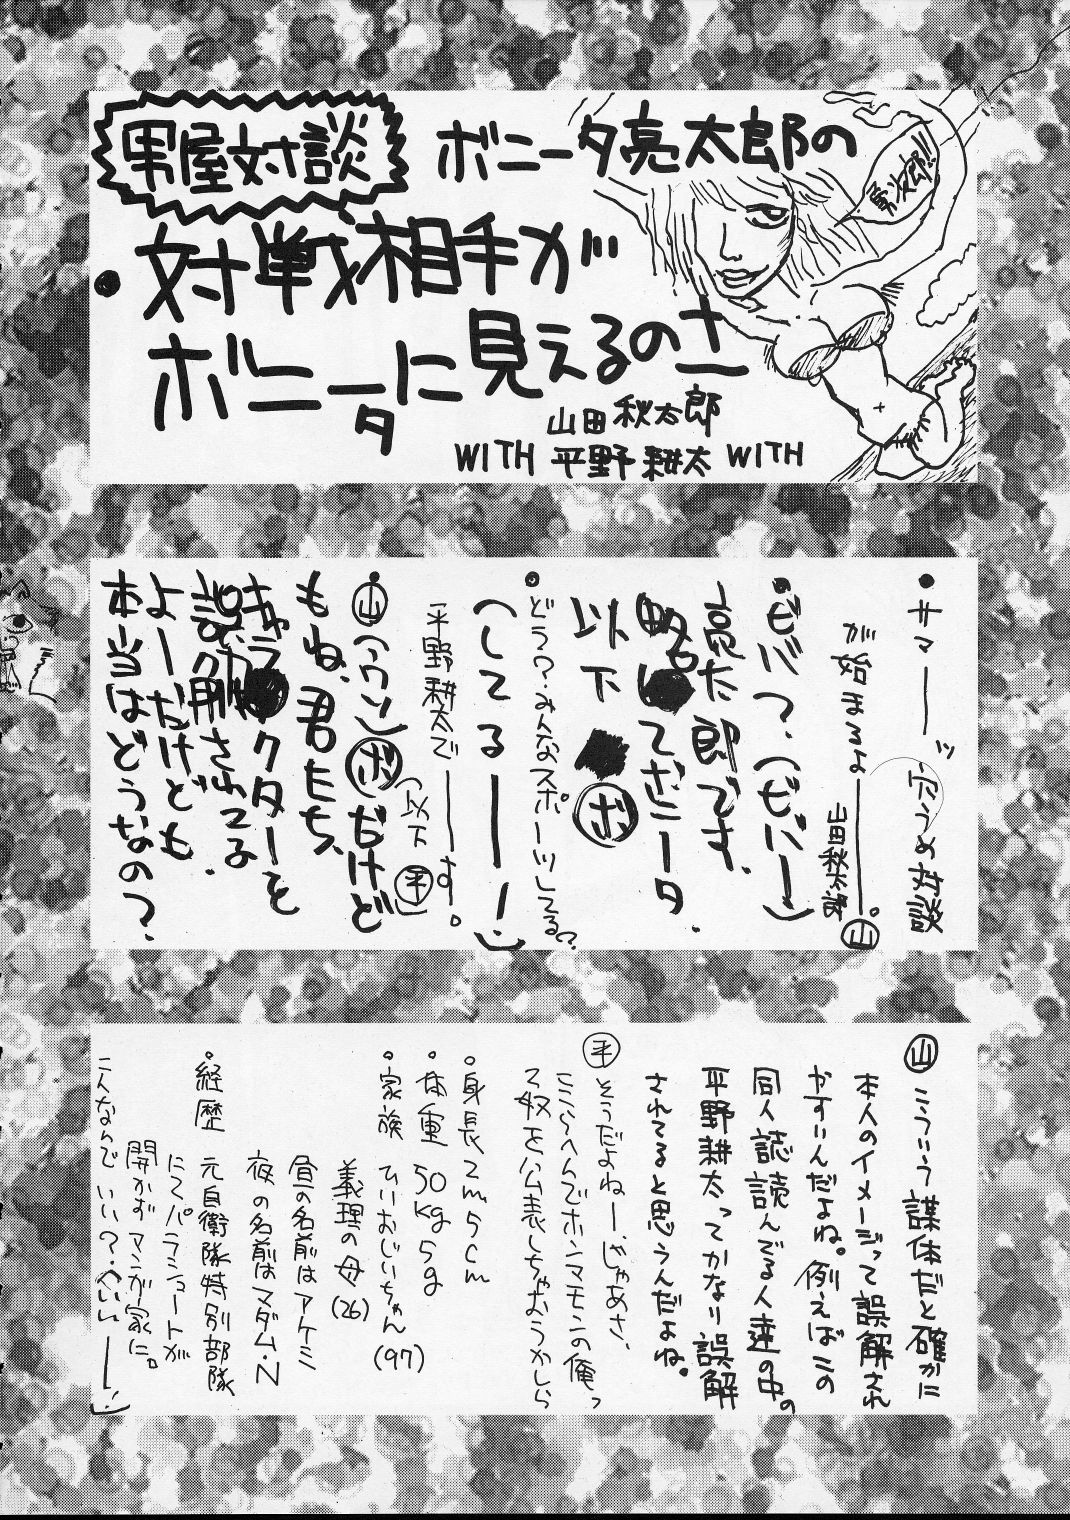 男屋対談
ボニータ亮太郎の
勇次郎!!
対戦相手が
ボニータに見えるのさ
山田秋太郎
WITH 平野耕太 WITH
・サマーッ 穴うめ対談
が始まるよ――。
山田秋太郎 山
・ビバ?.(ビバー)
亮太郎です.
略してボニータ.
以下 ボ
・どう?.みんなスポーツしてる?
(してるーー!)
平野耕太でーーす。
(以下 平)
山 (ウン) ボ だけど
もね、君たち、
キャラクターを
誤解されてる.
よーだけども
本当はどうなの?.
山 こういう謀体だと確かに
本人のイメージって誤解され
やすいんだよね。例えばこの
同人誌読んでる人達の中の
平野耕太ってかなり誤解
されてると思うんだよね。
平 そうだよねー、じゃあさ、
ここらへんでホンマモンの俺っ
て奴を公表しちゃおうかしら
・身長 2m5cm
・体重 50kg5g
・家族 ひいおじいちゃん(97)
義理の母(26)
昼の名前はアケミ
夜の名前はマダム・N
・経歴 元自衛隊特別部隊
にて、パラシュートが
開かずマンガ家に。
こんなんでいい?.(いいーー!)